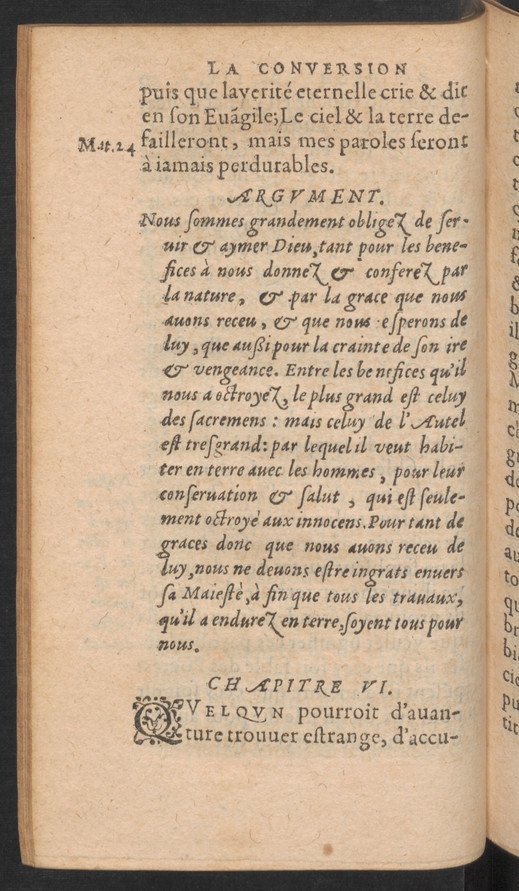 LA CONVERSION
puis que la verité eternelle crie & dit
en ſon Euãgile; Le ciel & la terre de-
Mat. 24 failleront, mais mes paroles ſeront
à iamais perdurables.
ARGVMENT.
Nous ſommes grandement obligez de ſer-
uir & aymer Dieu, tant pour les bene-
fices à nous donnez & conferez par
la nature, & par la grace que nous
auons receu, & que nous eſperons de
luy, que auſsi pour la crainte de ſon ire
& vengeance. Entre les benefices qu'il
nous a octroyez, le plus grand eſt celuy
des ſacremens : mais celuy de l'Autel
eſt treſgrand: par lequel il veut habi-
ter en terre auec les hommes, pour leur
conſeruation & ſalut, qui eſt ſeule-
ment octroyé aux innocens. Pour tant de
graces donc que nous auons receu de
luy, nous ne deuons eſtre ingrats enuers
ſa Maieſté, à fin que tous les trauaux,
qu'il a endurez en terre, ſoyent tous pour
nous.
CHAPITRE VI.
QVELQVN pourroit d'auan-
ture trouuer eſtrange, d'accu-